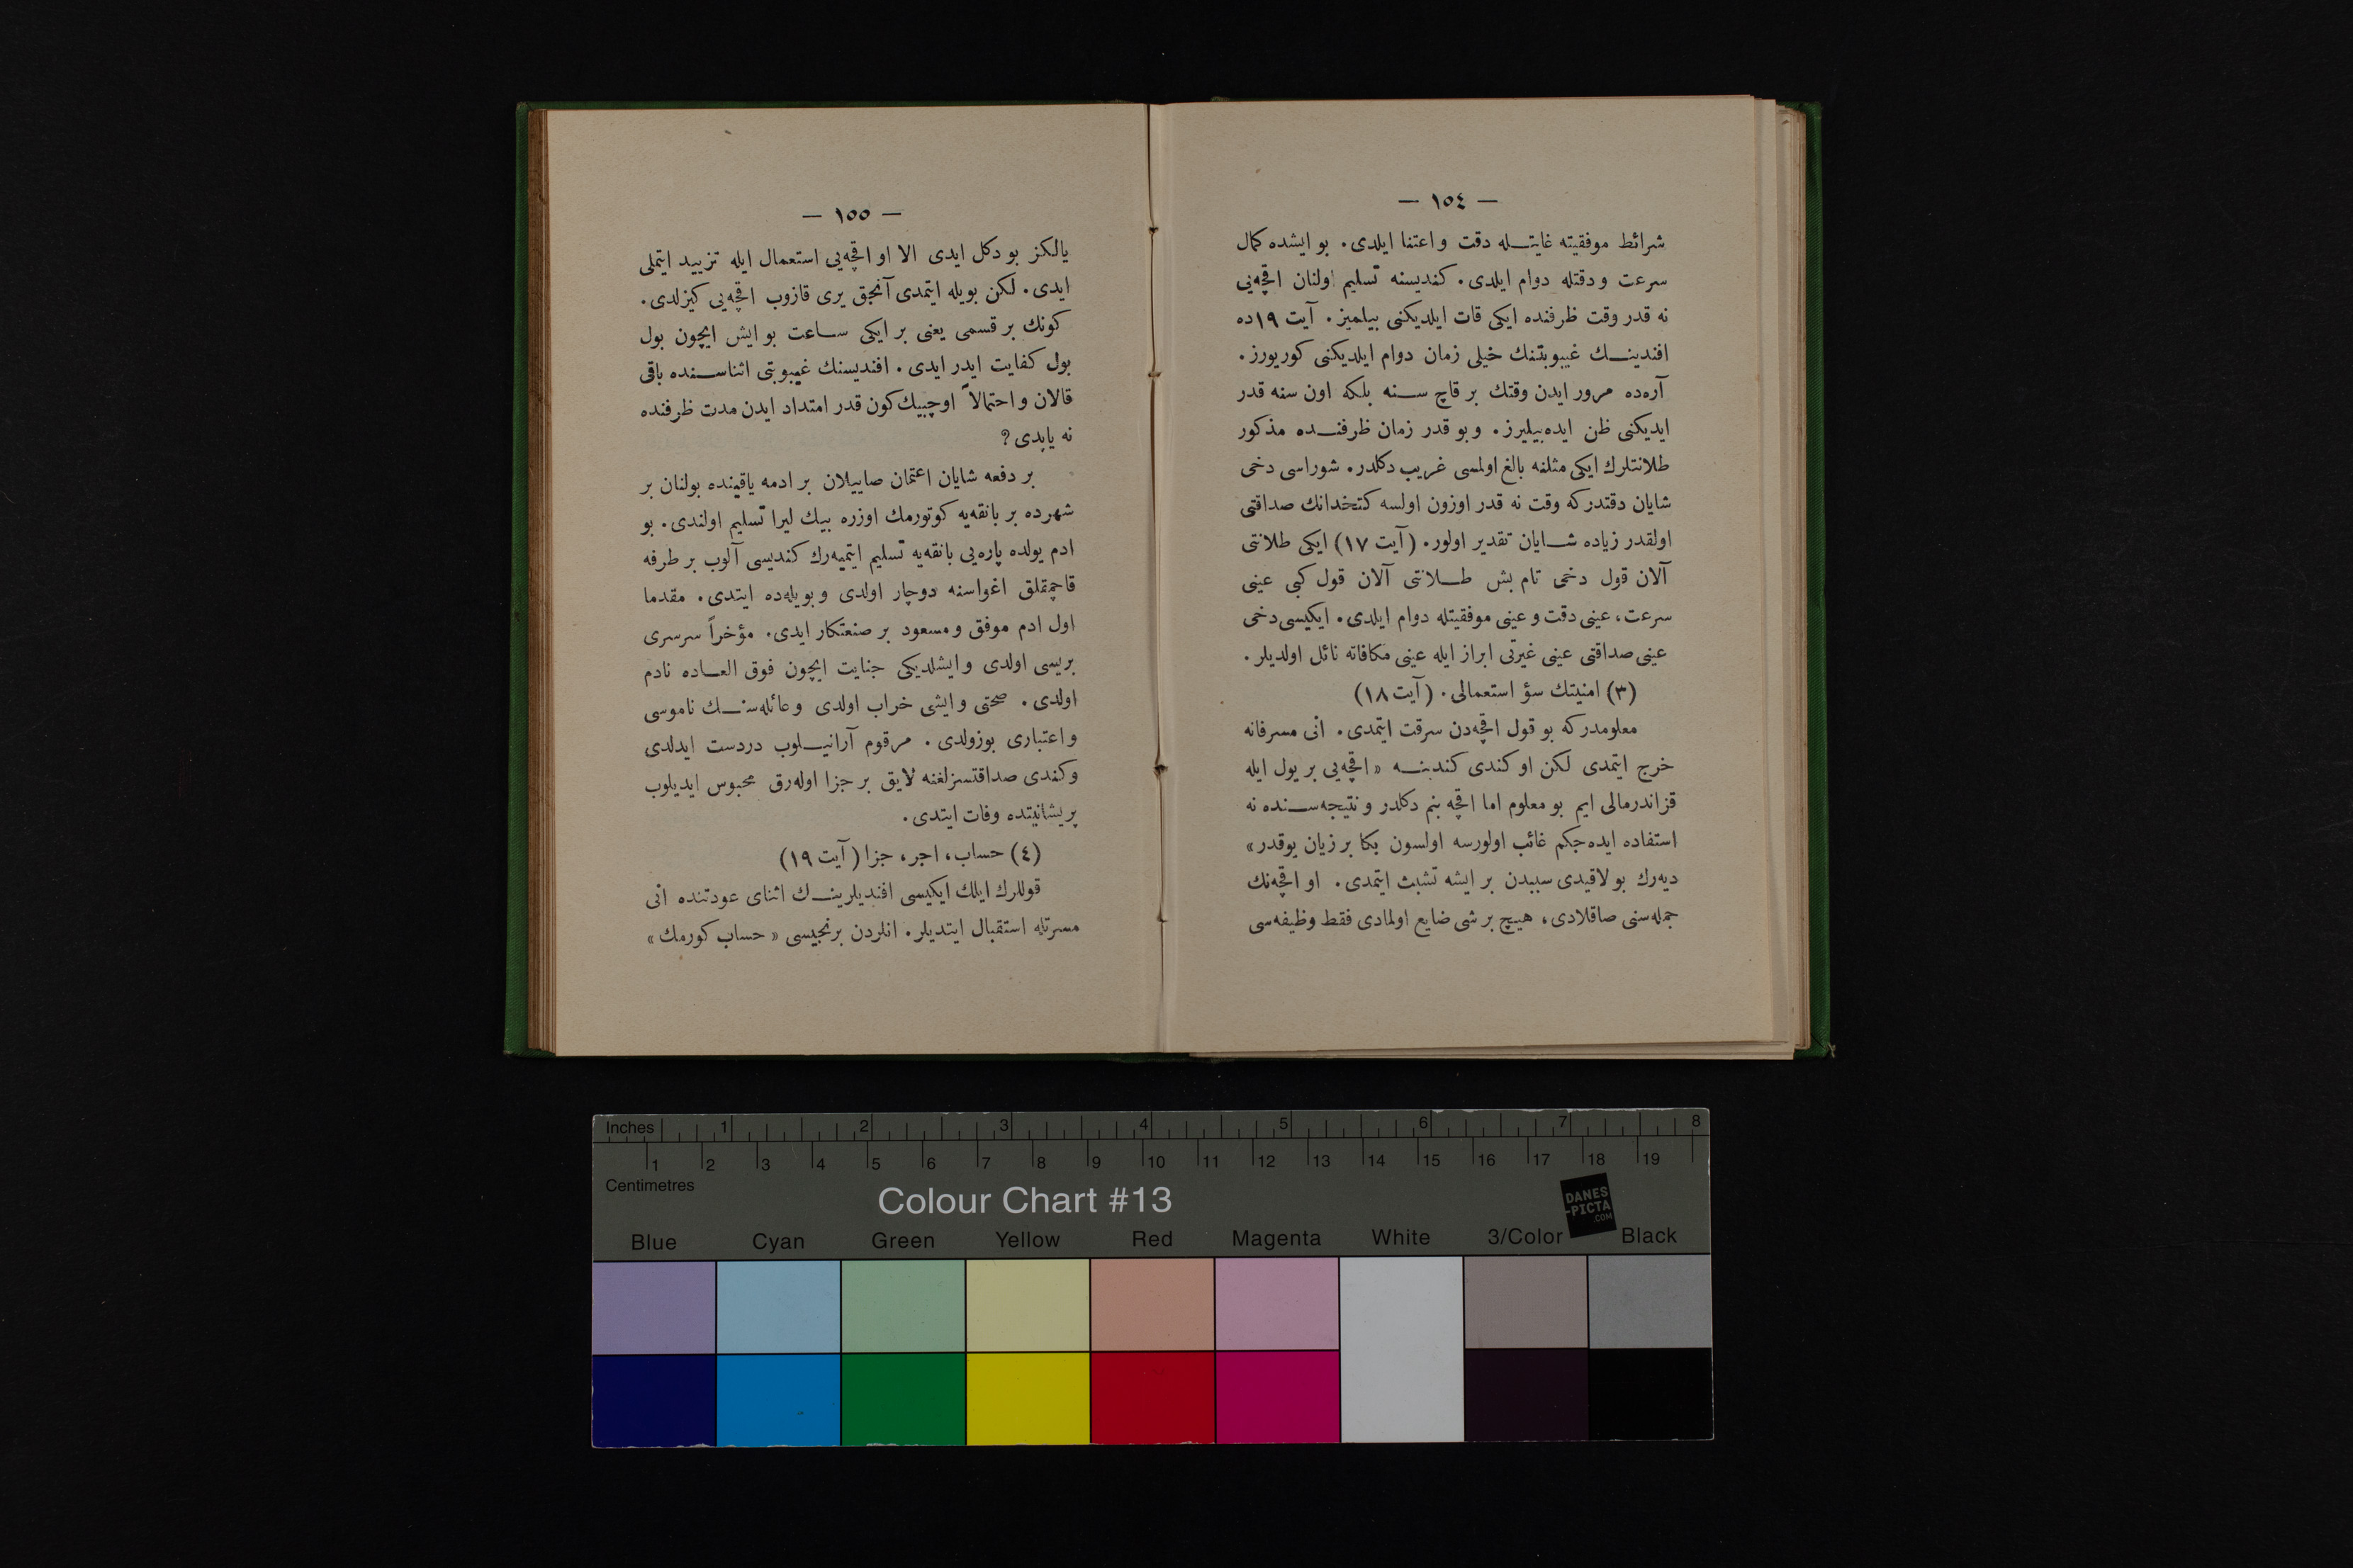 — ١٥٤ —
شرائط موفقيته غايتـــله دقت و اعتنا ايلدى. بو ايشده كمال
سرعت و دقتله دوام ايلدى. كنديسنه تسليم اولنان اقچه‌يى
نه قدر وقت ظرفنده ايكى قات ايلديكنى بيلميز. آيت ١٩ ده
افندينــــك غيبوبتنك خيلى زمان دوام ايلديكنى كوريورز.
آره‌ده مرور ايدن وقتك بر قاچ ســنه بلكه اون سنه قدر
ايديكنى ظن ايده‌بيليرز. و بو قدر زمان ظرفنــده مذكور
طلانتلرك ايكى مثلنه بالغ اولمسى غريب دكلدر. شوراسى دخى
شايان دقتدركه وقت نه قدر اوزون اولسه كتخدانك صداقتى
اولقدر زياده شـــايان تقدير اولور. (آيت ١٧) ايكى طلانتى
آلان قول دخى تام بش طـــلانتى آلان قول كبى عينى
سرعت، عينى دقت و عينى موفقيتله دوام ايلدى. ايكيسى دخى
عينى صداقتى عينى غيرتى ابراز ايله عينى مكافاته نائل اولديلر.
(٣) امنيتك سؤ استعمالى. (آيت ١٨)
معلومدركه بو قول اقچه‌دن سرقت ايتمدى. انى مسرفانه
خرج ايتمدى لكن او كندى كندينــه « اقچه‌يى بر يول ايله
قزاندرمالى ايم بو معلوم اما اقچه بنم دكلدر و نتيجه‌ســـنده نه
استفاده ايده‌جكم غائب اولورسه اولسون بكا بر زيان يوقدر »
ديه‌رك بو لاقيدى سببدن بر ايشه تشبث ايتمدى. او اقچه‌نك
جمله‌سنى صاقلادى، هيچ بر شى ضايع اولمادى فقط وظيفه‌سى
— ١٥٥ —
يالكز بو دكل ايدى الا او اقچه‌يى استعمال ايله تزييد ايتملى
ايدى. لكن بويله ايتمدى آنجق يرى قازوب اقچه‌يى كيزلدى.
كونك بر قسمى يعنى بر ايكى ســـاعت بو ايش ايچون بول
بول كفايت ايدر ايدى. افنديسنك غيبوبتى اثناســـنده باقى
قالان و احتمالاً اوچبيك كون قدر امتداد ايدن مدت ظرفنده
نه ياپدى؟
بر دفعه شايان اعتمان صاييلان بر ادمه ياقينده بولنان بر
شهرده بر بانقه‌يه كوتورمك اوزره بيك ليرا تسليم اولندى. بو
ادم يولده پاره‌يى بانقه‌يه تسليم ايتميه‌رك كنديسى آلوب بر طرفه
قاچمقلق اغواسنه دوچار اولدى و بويله‌ده ايتدى. مقدما
اول ادم موفق و مسعود بر صنعتكار ايدى. مؤخراً سرسرى
بريسى اولدى و ايشلديكى جنايت ايچون فوق العـــاده نادم
اولدى. صحتى و ايشى خراب اولدى و عائله‌سنــــك ناموسى
و اعتبارى بوزولدى. مرقوم آرانيـــلوب دردست ايدلدى
و كندى صداقتسزلغنه لايق بر جزا اوله‌رق محبوس ايديلوب
پريشانيتده وفات ايتدى.
(٤) حساب، اجر، جزا (آيت ١٩)
قوللرك ايلك ايكيسى افنديلرينــــك اثناى عودتنده انى
مسرتله استقبال ايتديلر. انلردن برنجيسى « حساب كورمك »
Inches 1 2 3 4 5 6 7 8
1 2 3 4 5 6 7 8 9 10 11 12 13 14 15 16 17 18 19
Centimetres
Colour Chart #13
DANES
-PICTA
.COM
Blue Cyan Green Yellow Red Magenta White 3/Color Black